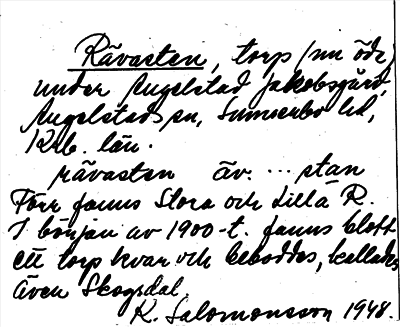 Rävasten, torp (nu öde)
under Angelstad Jakobsgård,
Angelstads sn, Sunnerbo hd,
Krb. län.
rävasten äv. ... stan
Förr fanns Stora och Lilla R.
I början av 1900-t. fanns blott
ett torp kvar och beboddes, kallades
även Skogsdal.
K. Salomonsson 1948.